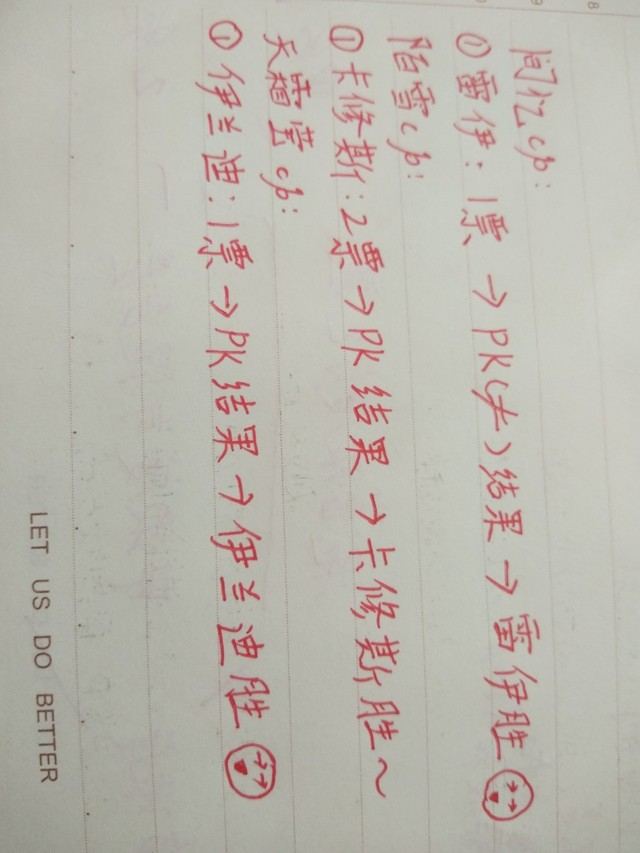 间忆cp:
①雷伊:1票→PK(无)结果→雷伊胜
陌雪cp:
①卡修斯:2票→PK结果→卡修斯胜~
天霜莹cp:
①伊兰迪:1票→PK结果→伊兰迪胜
LET US DO BETTER